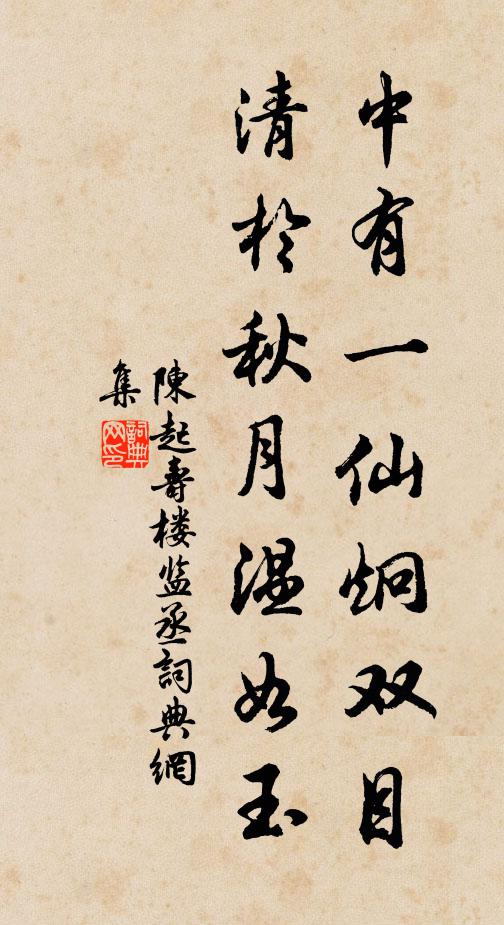 中有一仙炯双目
清於秋月温如玉
陳起壽楼监丞詞典網
集
詞典網印